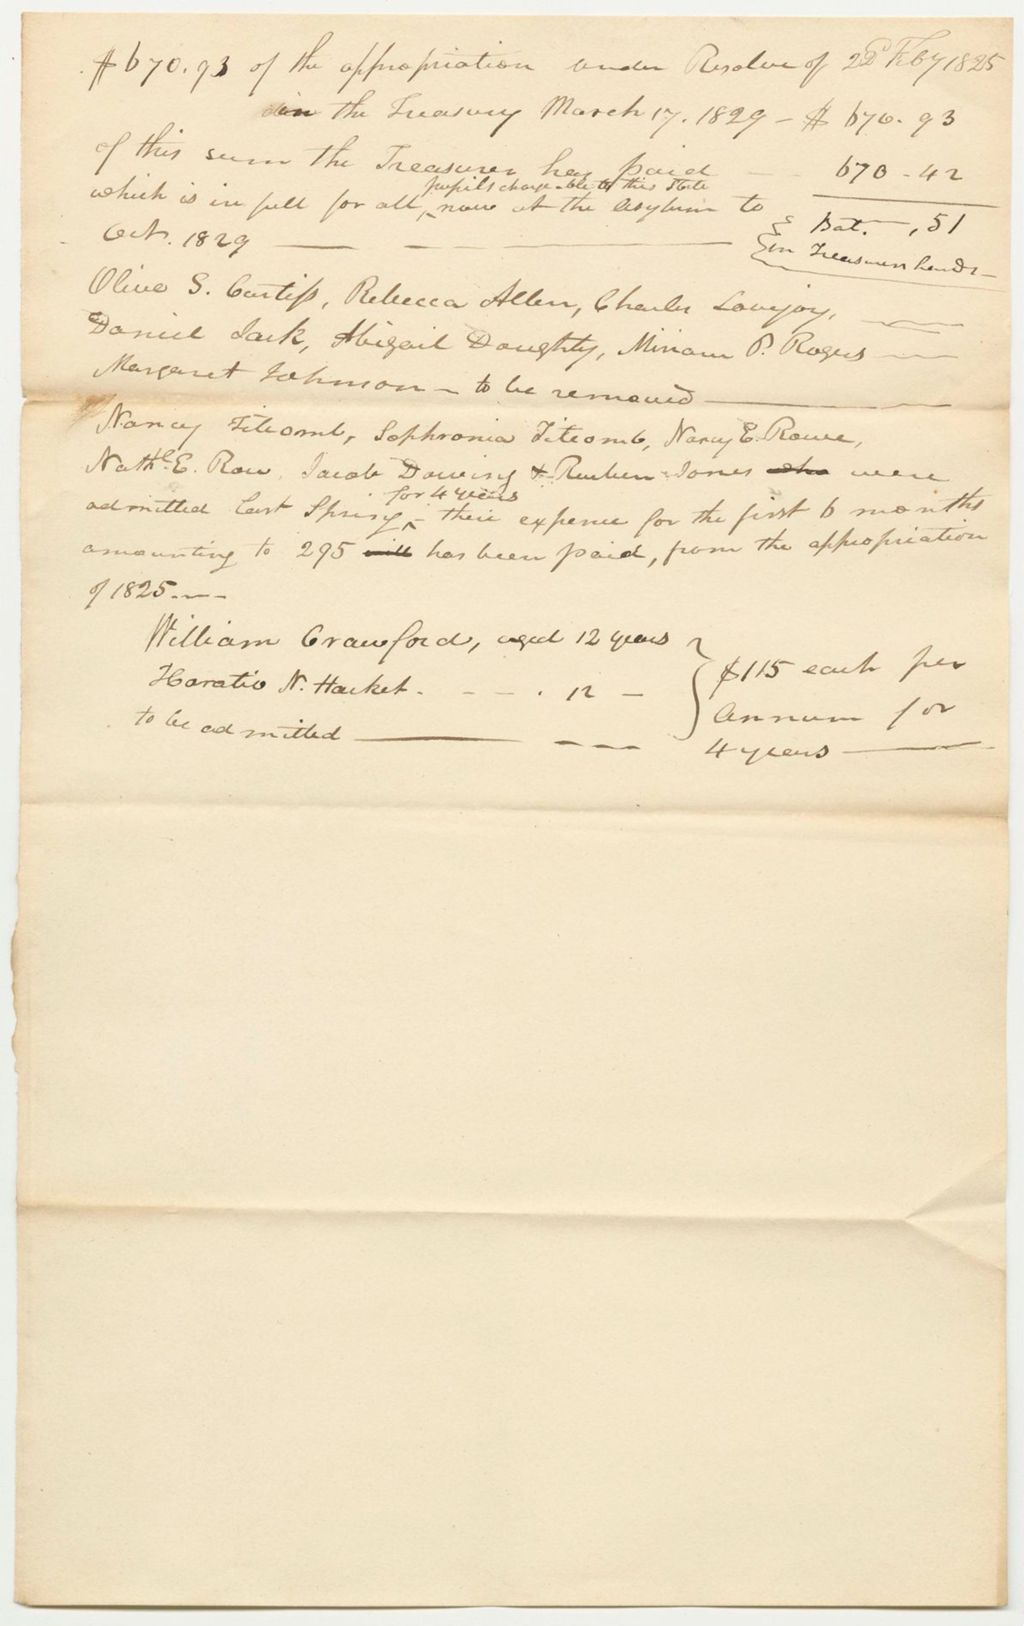 $670.93 of the appropriation under Resolve of 22d Feby 1825
in the Treasury March 17. 1829 - $ 670.93
of this sum the Treasurer has paid - - 670-42
pupils chargeable to this State
which is in full for all ^ now at the Asylum to
Bal. - ,51
Oct. 1829
in Treasurers hands -
Olive S. Curtiss, Rebecca Allen, Charles Lovejoy,
Daniel Jack, Abigail Doughty, Miriam P. Rogers
Margaret Johnson - to be removed
Nancy Titcomb, Sophronia Titcomb, Nancy E. Rowe,
Nathl. E. Row, Jacob Dowing & Reuben Jones were
for 4 years
admitted last Spring ^ - their expense for the first 6 months
amounting to 295 has been paid, from the appropriation
of 1825.
William Crawford, aged 12 years
$115 each per
Horatio N. Hacket. - - . 12 -
annum for
to be admitted
4 years